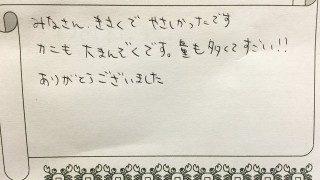 みなさん、きさくで やさしかったです
カニも 大まんぞくです。量も多くてすごい!!
ありがとうございました